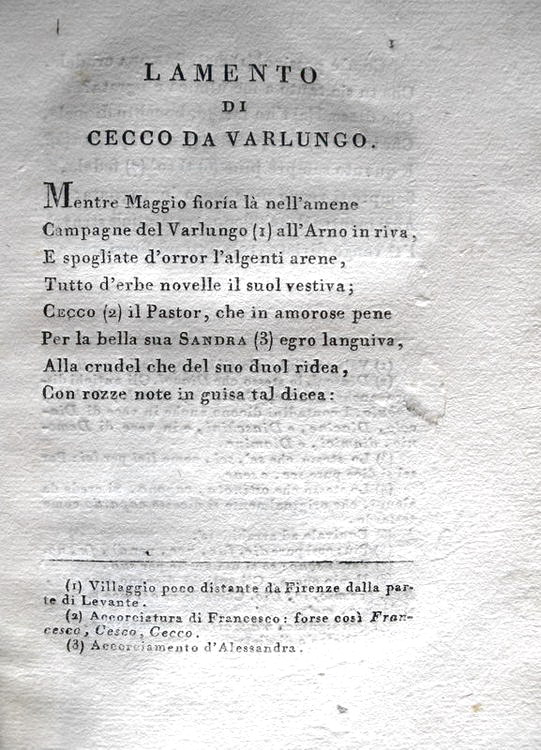 1
LAMENTO
DI
CECCO DA VARLUNGO.
Mentre Maggio fioría là nell'amene
Campagne del Varlungo (1) all'Arno in riva,
E spogliate d'orror l'algenti arene,
Tutto d'erbe novelle il suol vestiva;
CECCO (2) il Pastor, che in amorose pene
Per la bella sua SANDRA (3) egro languiva,
Alla crudel che del suo duol ridea,
Con rozze note in guisa tal dicea:
(1) Villaggio poco distante da Firenze dalla par-
te di Levante.
(2) Accorciatura di Francesco: forse così Fran-
cesco, Cesco, Cecco.
(3) Accorciamento d'Alessandra.